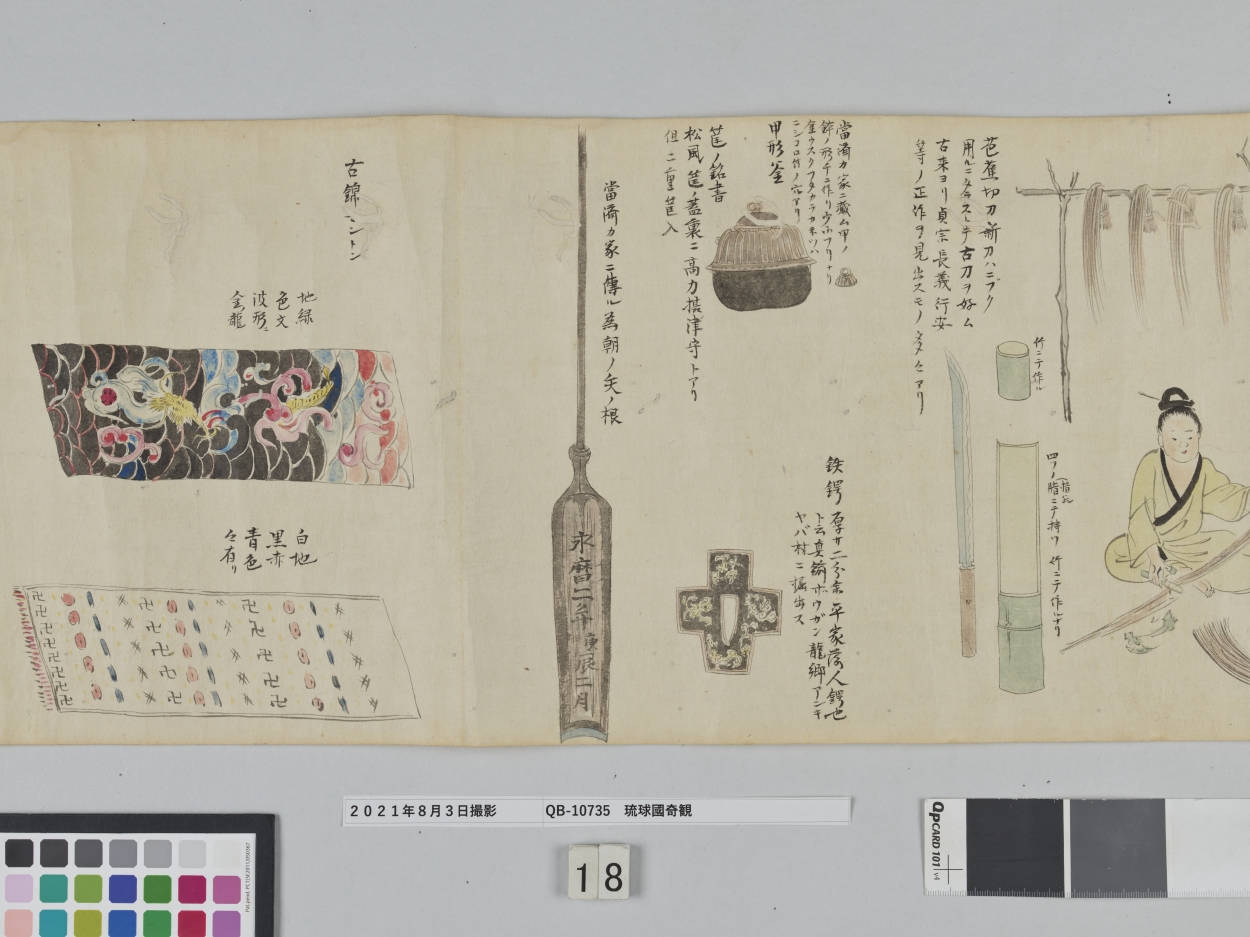 竹ニテ作ル
四ツノ
指
ニテ持ツ 竹ニテ作ルナリ
芭蕉切刀新刀ハニブク
用ルニタタスシテ古刀ヲ好ム
古来ヨリ貞宗長義行安
等ノ正作ヲ見出スモノ多クアリ
當濟カ家ニ藏ム甲ノ
甲形釜
鉄鍔 厚サ二分余平家落人鍔也
ト云真鍮ホウガン龍郷アシキ
ヤバ村ニ掘出ス
筐ノ銘書
松風 筐ノ蓋裏ニ高力摂津守トアリ
但ニ重筐入
當濟カ家ニ傳ル為朝ノ矢ノ根
永暦二年庚辰二月
古錦 ミントン
地緑
色文
波形ニ
金龍
白地
黒赤
青色
色有リ
2021年8月3日撮影 QB-10735 琉球國奇観
18
QpCARD 101 v4